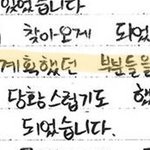 있었습니다
찾아오게 되었
계획했던 부분들을
당황스럽기도 했
되었습니다.